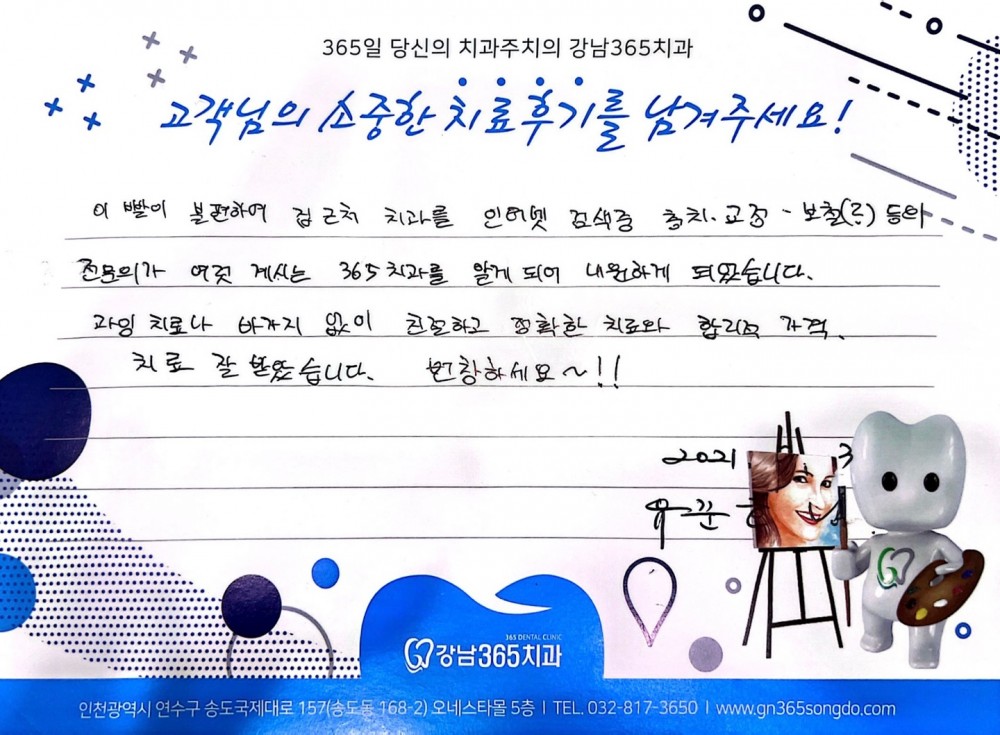 365일 당신의 치과주치의 강남365치과
고객님의 소중한 치료후기를 남겨주세요!
이빨이 불편하여 집 근처 치과를 인터넷 검색중 충치·교정-보철(존) 등의
전문의가 여럿 계시는 365치과를 알게 되어 내원하게 되었습니다.
과잉 치료나 바가지 없이 친절하고 정확한 치료와 합리적 가격.
치료 잘 받았습니다. 번창하세요~!!
2021 3
365 DENTAL CLINIC
강남365치과
인천광역시 연수구 송도국제대로 157(송도동 168-2) 오네스타몰 5층 | TEL. 032-817-3650 | www.gn365songdo.com